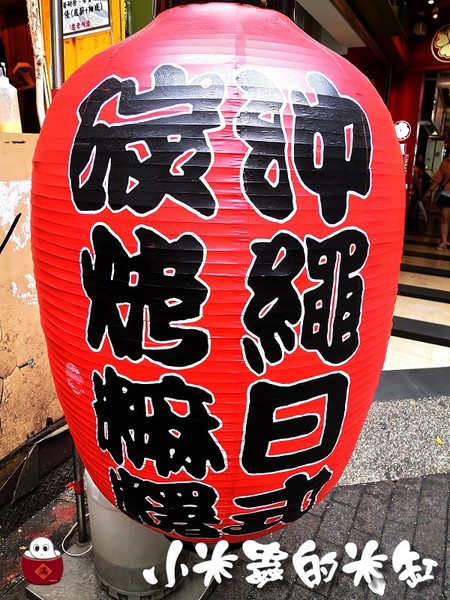 沖繩日式
碳烤䊳糬
小米蟲的米缸